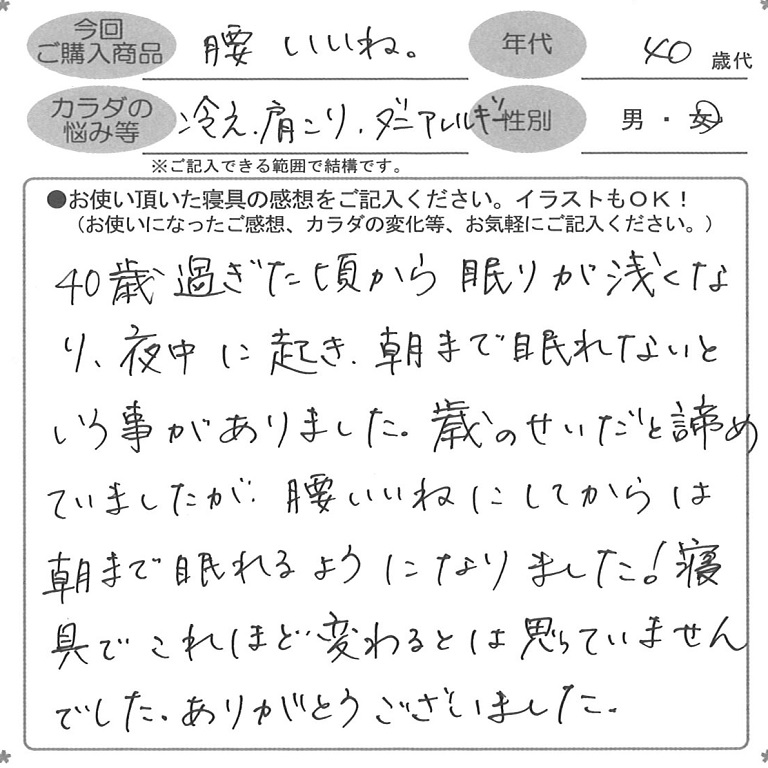 今回
ご購入商品
腰いいね。
年代
40 歳代
カラダの
悩み等
冷え、肩こり、ダニアレルギー
性別
男・女
※ご記入できる範囲で結構です。
●お使い頂いた寝具の感想をご記入ください。イラストもOK!
(お使いになったご感想、カラダの変化等、お気軽にご記入ください。)
40歳過ぎた頃から眠りが浅くな
り、夜中に起き、朝まで眠れないと
いう事がありました。歳のせいだと諦め
ていましたが、腰いいねにしてからは
朝まで眠れるようになりました!寝
具でこれほど変わるとは思っていません
でした。ありがとうございました。